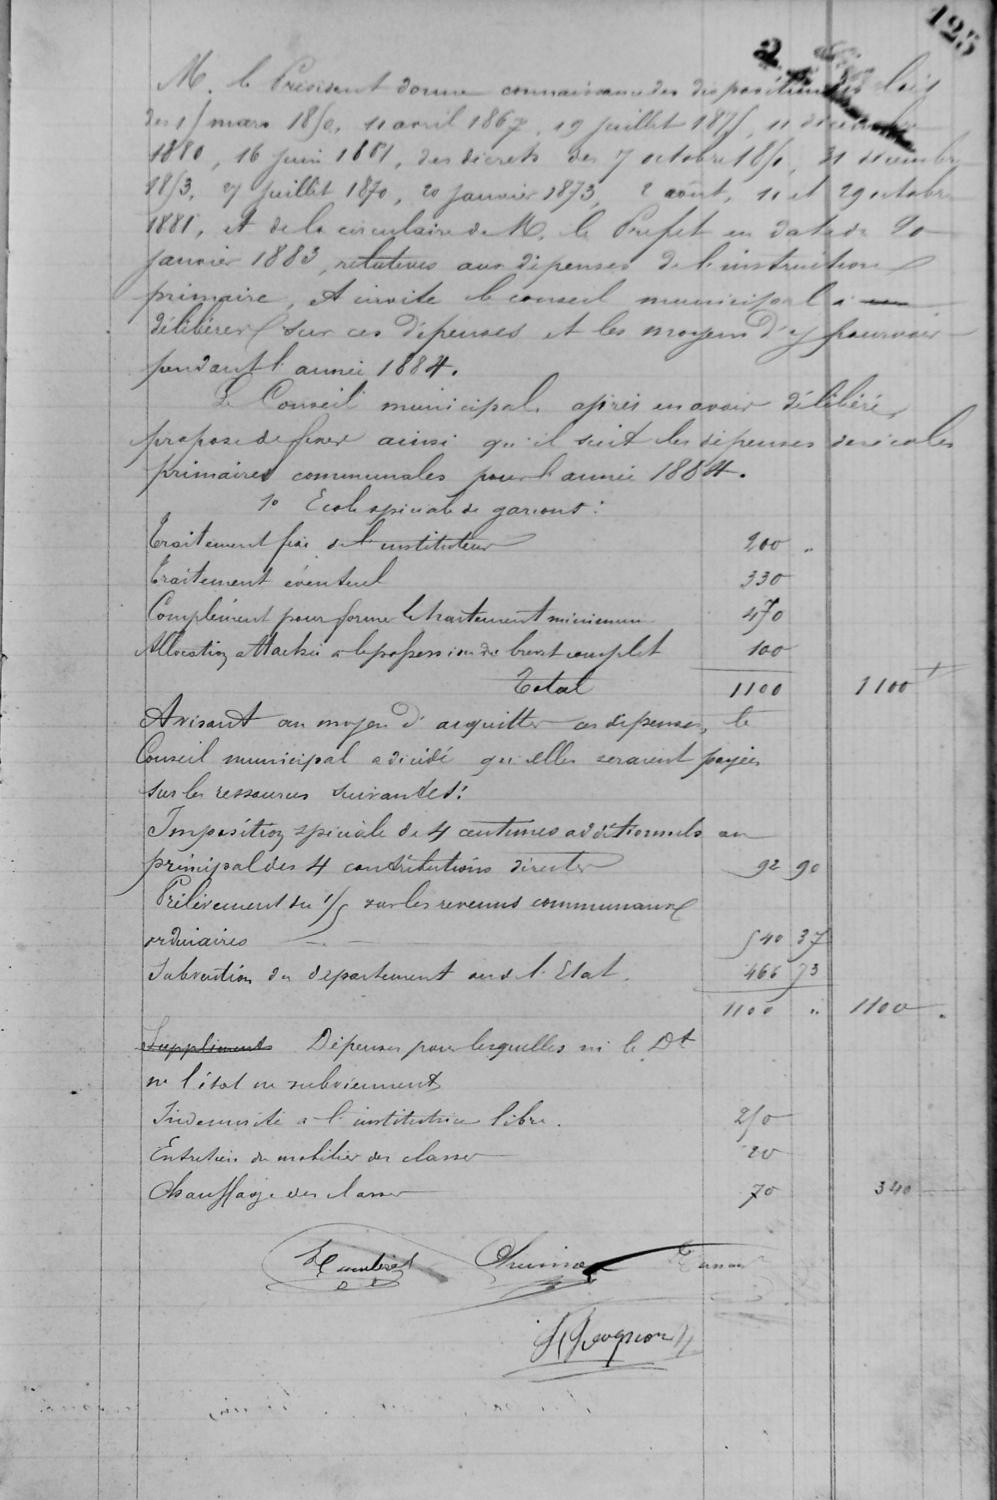 125
2
M. le Président donne connaissance des dispositions des lois
des 15 mars 1850, 11 avril 1867, 19 juillet 1875, 11 décembre
1880, 16 juin 1881, des décrets des 7 octobre 1850, 31 décembre
1853, 27 juillet 1870, 20 janvier 1873, 2 août, 11 et 29 octobre
1881, et de la circulaire de M. le Préfet en date du 20
janvier 1883, relatives aux dépenses de l'instruction
primaire, et invite le conseil municipal à
délibérer sur ces dépenses et les moyens d'y pourvoir
pendant l'année 1884.
Le Conseil municipal, après en avoir délibéré,
propose de fixer ainsi qu'il suit les dépenses des écoles
primaires communales pour l'année 1884.
1o Ecole spéciale de garçons :
Traitement fixe de l'instituteur 200 "
Traitement éventuel 330
Complément pour former le traitement minimum 470
Allocation attachée à la possession du brevet complet 100
Total 1100 1100
Avisant au moyen d'acquitter ces dépenses, le
Conseil municipal a décidé qu'elles seraient payées
sur les ressources suivantes :
Imposition spéciale de 4 centimes additionnels au
principal des 4 contributions directes 92 90
Prélèvement du 1/5 sur les revenus communaux
ordinaires 540 37
Subvention du département ou de l'Etat. 466 73
1100 " 1100 "
Suppléments Dépenses pour lesquelles ni le Dt
ni l'état ne subviennent
Indemnité à l'institutrice libre. 250
Entretien du mobilier des classes 20
Chauffage des classes 70 340